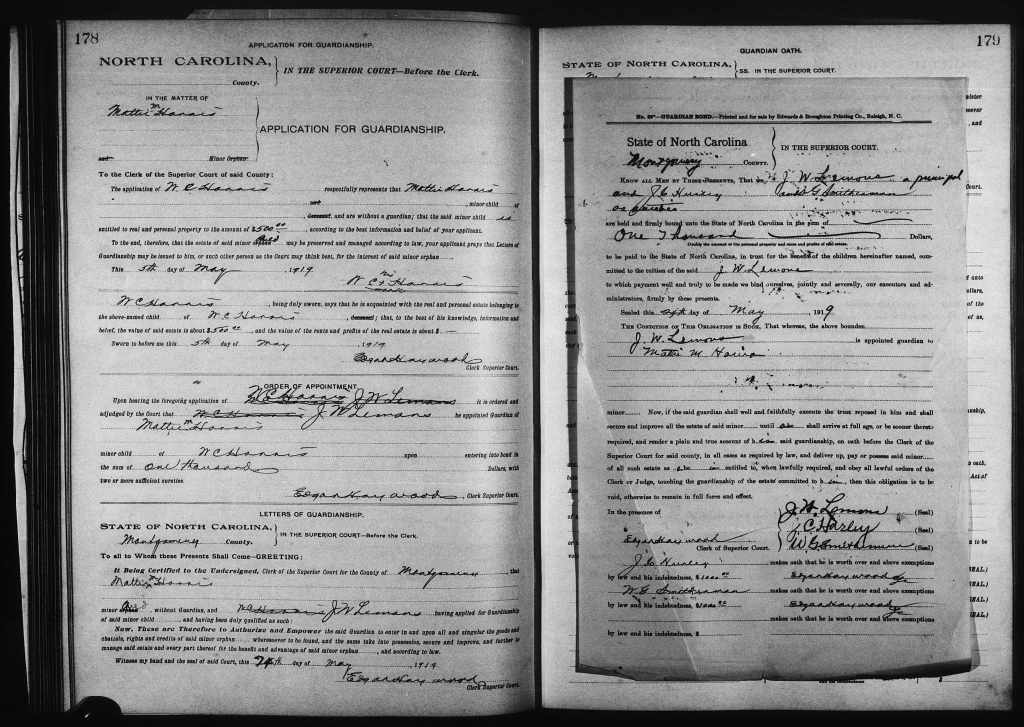 178
APPLICATION FOR GUARDIANSHIP.
NORTH CAROLINA,
County.
IN THE SUPERIOR COURT—Before the Clerk.
IN THE MATTER OF
Mattie M Harris
APPLICATION FOR GUARDIANSHIP.
and Minor Orphan
To the Clerk of the Superior Court of said County:
The application of W C Harris respectfully represents that Mattie Harris
and , minor child of
, deceased, and are without a guardian; that the said minor child is
entitled to real and personal property to the amount of $500 00 , according to the best information and belief of your applicant.
To the end, therefore, that the estate of said minor orphan child may be preserved and managed according to law, your applicant prays that Letters of
Guardianship may be issued to him, or such other person as the Court may think best, for the interest of said minor orphan
This 5th day of May , 1919
W C Harris
W C Harris , being duly sworn, says that he is acquainted with the real and personal estate belonging to
the above-named child of W C Harris , deceased; that, to the best of his knowledge, information and
belief, the value of said estate is about $500 00 , and the value of the rents and profits of the real estate is about $ —
Sworn to before me this 5th day of May , 1919
Edgar Haywood
Clerk Superior Court.
ORDER OF APPOINTMENT
Upon hearing the foregoing application of W C Harris J W Lemons it is ordered and
adjudged by the Court that W C Harris J W Lemons be appointed Guardian of
Mattie M Harris
minor child of W C Harris upon entering into bond in
the sum of One thousand Dollars, with
two or more sufficient sureties.
Edgar Haywood , Clerk Superior Court.
LETTERS OF GUARDIANSHIP.
STATE OF NORTH CAROLINA,
Montgomery County.
IN THE SUPERIOR COURT—Before the Clerk.
To all to Whom these Presents Shall Come—GREETING:
It Being Certified to the Undersigned, Clerk of the Superior Court for the County of Montgomery , that
Mattie M Harris
minor orphan child , without Guardian, and W C Harris J W Lemons having applied for Guardianship
of said minor child , and having been duly qualified as such:
Now, These are Therefore to Authorize and Empower the said Guardian to enter in and upon all and singular the goods and
chattels, rights and credits of said minor orphan , wheresoever to be found, and the same take into possession, secure and improve, and further to
manage said estate and every part thereof for the benefit and advantage of said minor orphan , and according to law.
Witness my hand and the seal of said Court, this 24th day of May , 1919
Edgar Haywood
Clerk Superior Court.
179
GUARDIAN OATH.
STATE OF NORTH CAROLINA,
SS. IN THE SUPERIOR COURT.
GUARDIAN BOND.—Printed and for sale by Edwards & Broughton Printing Co., Raleigh, N. C.
State of North Carolina
Montgomery County.
IN THE SUPERIOR COURT.
KNOW ALL MEN BY THESE PRESENTS, That we J. W. Lemons a principal
and J C Hurley and W G Smitherman
as
are held and firmly bound unto the State of North Carolina in the sum of
One Thousand Dollars,
Double the amount of the personal property and rents and profits of real estate.
to be paid to the State of North Carolina, in trust for the benefit of the children hereinafter named, com-
mitted to the tuition of the said J. W. Lemons
to which payment well and truly to be made we bind ourselves, jointly and severally, our executors and ad-
ministrators, firmly by these presents.
Sealed this day of May 1919
THE CONDITION OF THIS OBLIGATION IS SUCH, That whereas, the above bounden
J. W. Lemons is appointed guardian to
Mattie M. Harris
minor Now, if the said guardian shall well and faithfully execute the trust reposed in him and shall
secure and improve all the estate of said minor until she shall arrive at full age, or be sooner thereto
required, and render a plain and true account of h said guardianship, on oath before the Clerk of the
Superior Court for said county, in all cases as required by law, and deliver up, pay or possess said minor
of all such estate as he entitled to, when lawfully required, and obey all lawful orders of the
Clerk or Judge, touching the guardianship of the estate committed to h , then this obligation is to be
void, otherwise to remain in full force and effect.
In the presence of
J. W. Lemons (Seal)
J. C. Hurley (Seal)
Edgar Haywood
Clerk of Superior Court.
W G Smitherman (Seal)
J C Hurley makes oath that he is worth over and above exemptions
by law and his indebtedness, $1000 00 Edgar Haywood
W. G. Smitherman makes oath that he is worth over and above exemptions
by law and his indebtedness, $1000 00 Edgar Haywood
makes oath that he is worth over and above exemptions
by law and his indebtedness, $